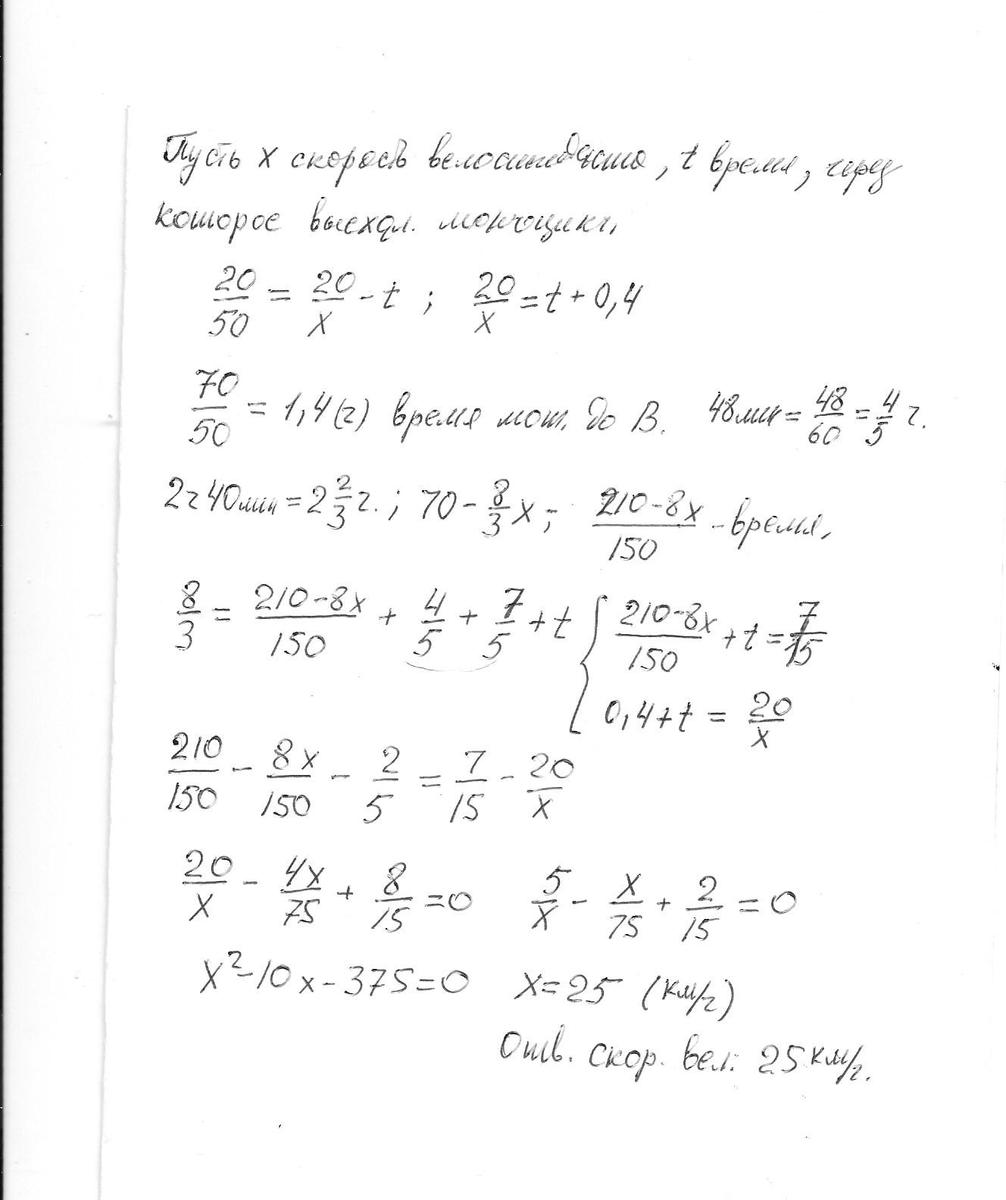 Пусть x скорость велосипедиста, t время, через
которое выехал. мотоцикл,
20/50 = 20/x - t ; 20/x = t + 0,4
70/50 = 1,4 (ч) время мот. до В. 48 мин = 48/60 = 4/5 ч.
2ч 40мин = 2 2/3 ч. ; 70 - 8/3 x ; 210-8x/150 - время,
8/3 = 210-8x/150 + 4/5 + 7/5 + t { 210-8x/150 + t = 7/15
0,4 + t = 20/x
210/150 - 8x/150 - 2/5 = 7/15 - 20/x
20/x - 4x/75 + 8/15 = 0 5/x - x/75 + 2/15 = 0
x² - 10x - 375 = 0 x = 25 (км/ч)
Отв. скор. вел: 25 км/ч.